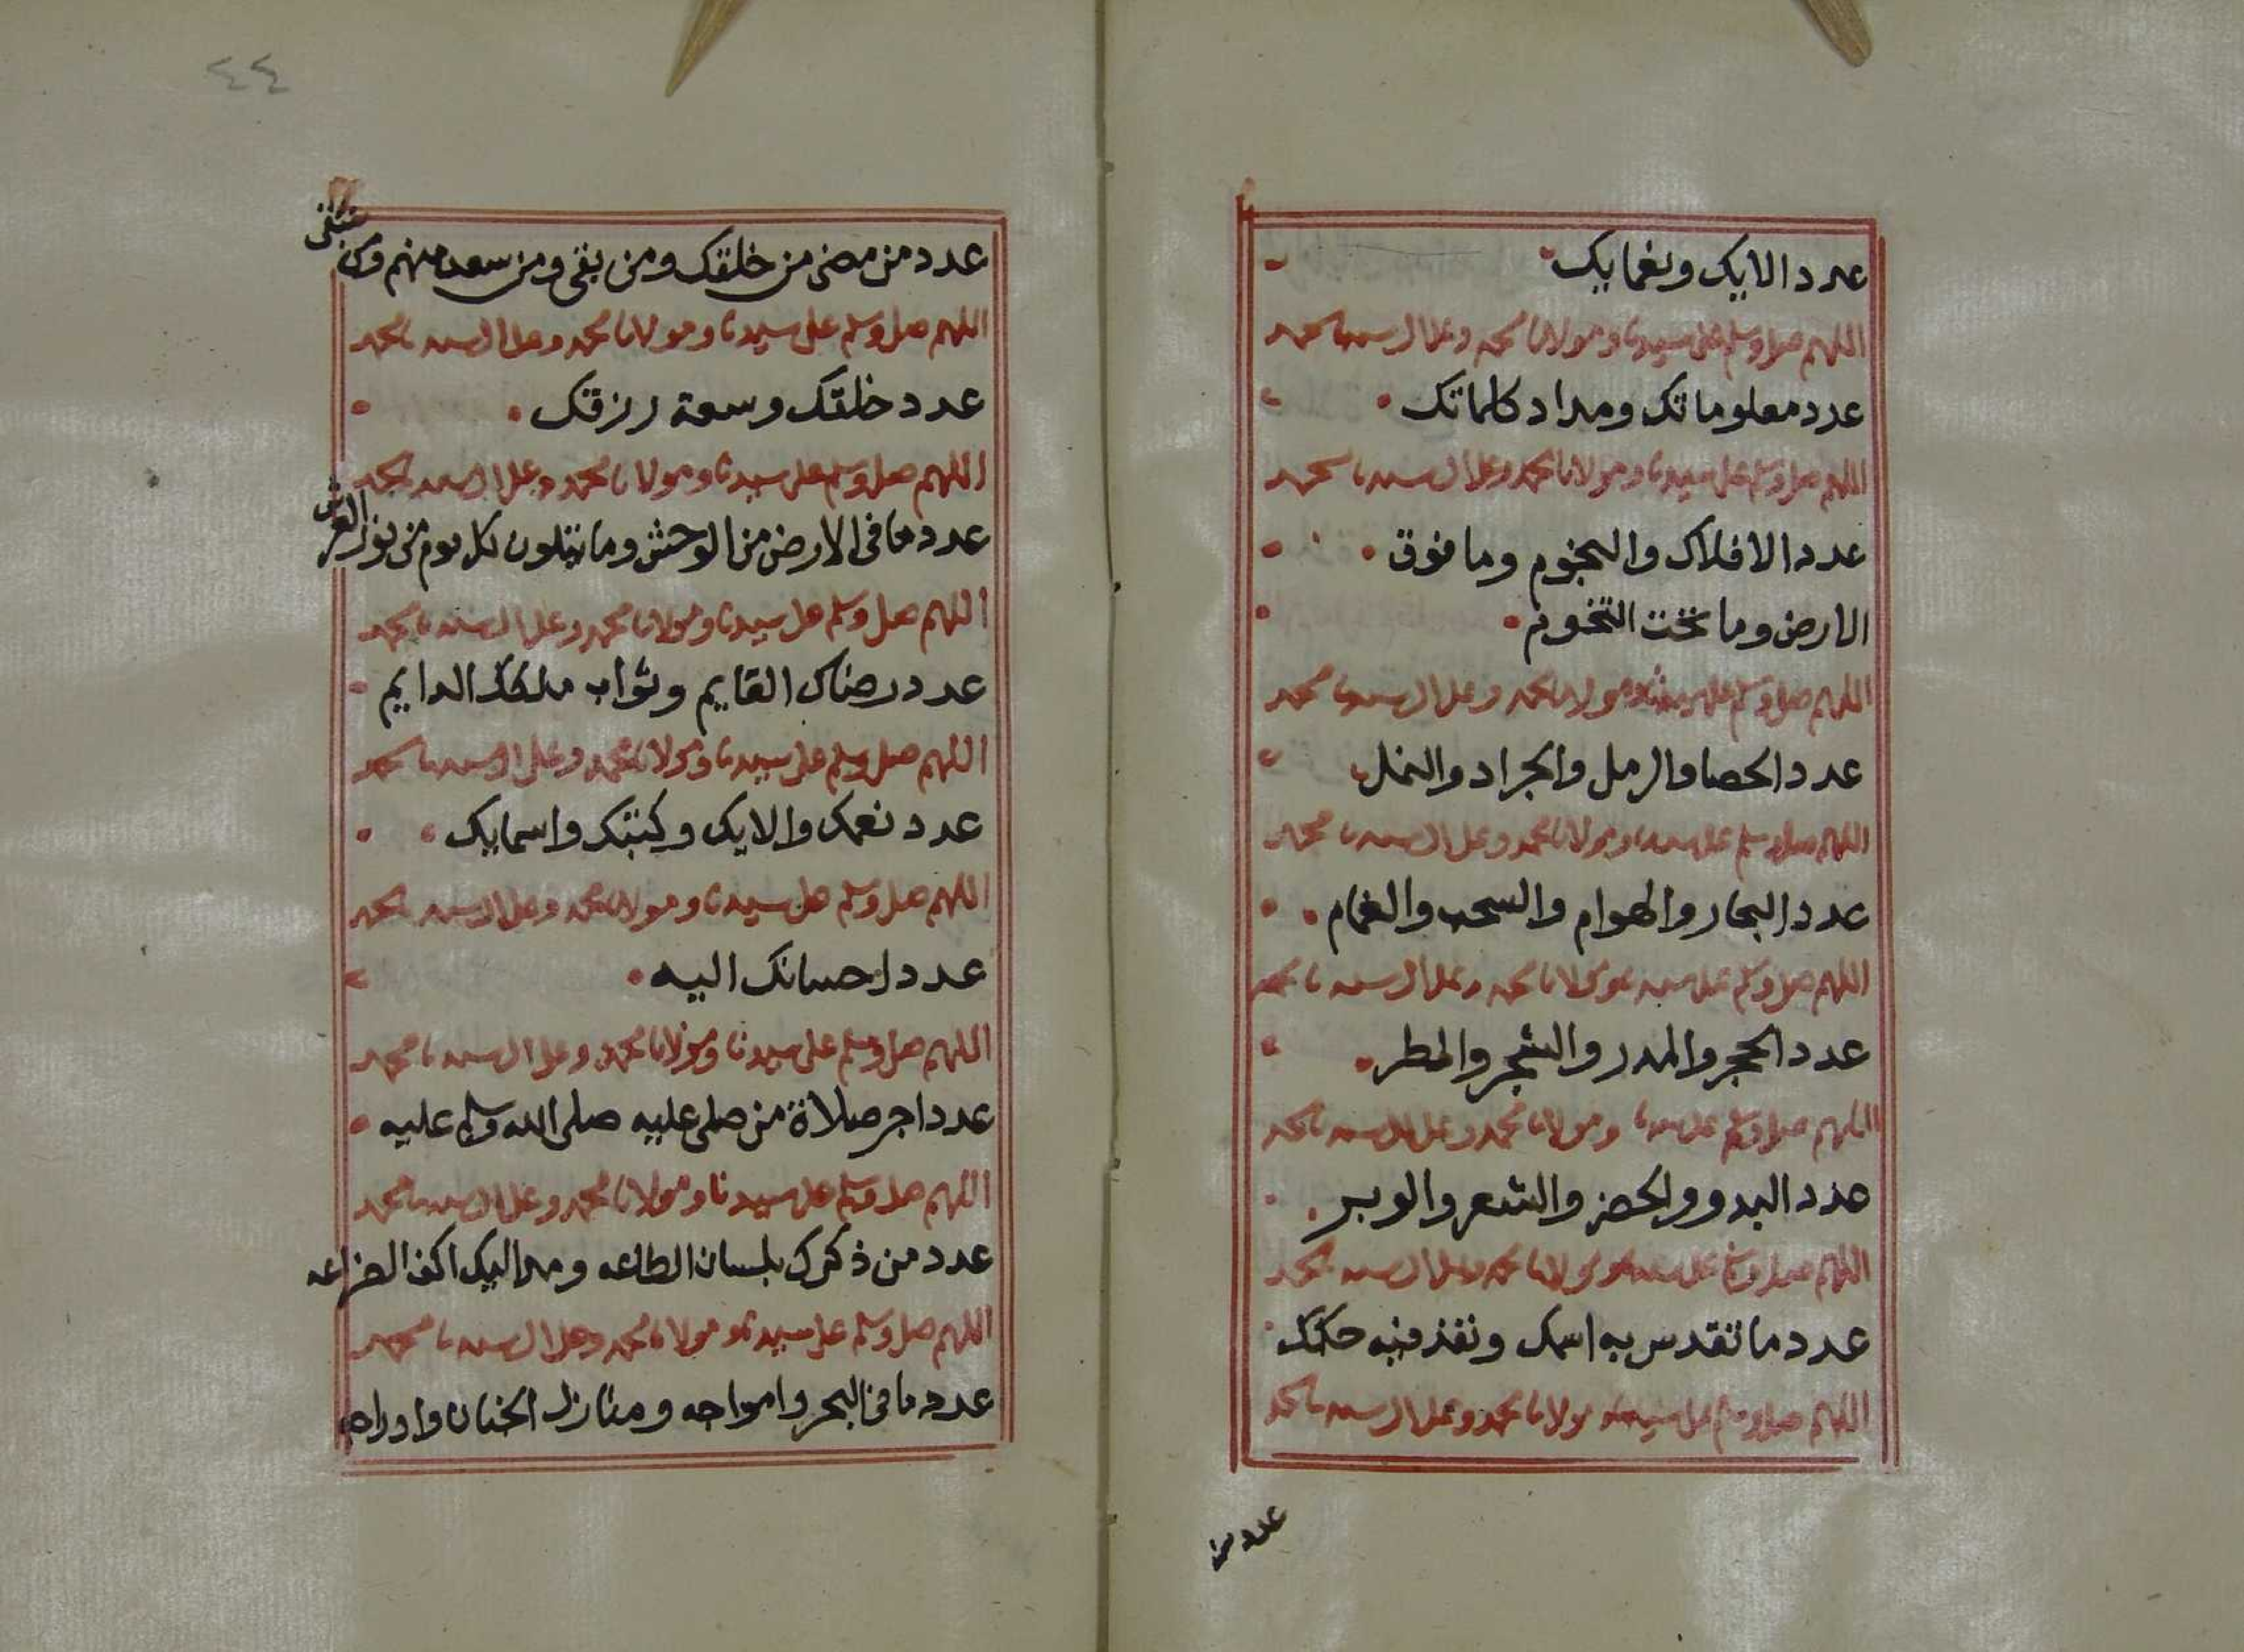 عدد الايك ونعمايك
اللهم صل وسلم على سيدنا ومولانا محمد وعلى ال سيدنا محمد
عدد معلوماتك ومداد كلماتك
اللهم صل وسلم على سيدنا ومولانا محمد وعلى ال سيدنا محمد
عدد الافلاك والنجوم وما فوق
الارض وما تحت التخوم
اللهم صل وسلم على سيدنا ومولانا محمد وعلى ال سيدنا محمد
عدد الحصا والرمل والجراد والنمل
اللهم صل وسلم على سيدنا ومولانا محمد وعلى ال سيدنا محمد
عدد البحار والهوام والسحب والغمام
اللهم صل وسلم على سيدنا ومولانا محمد وعلى ال سيدنا محمد
عدد الحجر والمدر والشجر والمطر
اللهم صل وسلم على سيدنا ومولانا محمد وعلى ال سيدنا محمد
عدد البدو والحضر والشعر والوبر
اللهم صل وسلم على سيدنا ومولانا محمد وعلى ال سيدنا محمد
عدد ما تقدس به اسمك ونفذ فيه حكمك
اللهم صل وسلم على سيدنا ومولانا محمد وعلى ال سيدنا محمد
عدد من
٤٤
عدد من مضى من خلقك ومن بقى ومن سعد منهم ومن شقى
اللهم صل وسلم على سيدنا ومولانا محمد وعلى ال سيدنا محمد
عدد خلقك وسعة رزقك
اللهم صل وسلم على سيدنا ومولانا محمد وعلى ال سيدنا محمد
عدد ما فى الارض من الوحش وما يتلون كل يوم من نور العرش
اللهم صل وسلم على سيدنا ومولانا محمد وعلى ال سيدنا محمد
عدد رضاك القايم وثواب ملكك الدايم
اللهم صل وسلم على سيدنا ومولانا محمد وعلى ال سيدنا محمد
عدد نعمك والايك وكتبك واسمايك
اللهم صل وسلم على سيدنا ومولانا محمد وعلى ال سيدنا محمد
عدد احسانك اليه
اللهم صل وسلم على سيدنا ومولانا محمد وعلى ال سيدنا محمد
عدد اجر صلاة من صلى عليه صلى الله وسلم عليه
اللهم صل وسلم على سيدنا ومولانا محمد وعلى ال سيدنا محمد
عدد من ذكرك بلسان الطاعه ومد اليك اكف الضراعه
اللهم صل وسلم على سيدنا ومولانا محمد وعلى ال سيدنا محمد
عدد ما فى البحر وامواجه ومنازل الجنان وادراجه